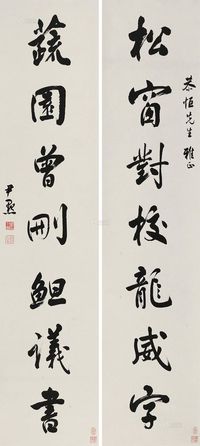 松窗對校龍威字
恭恒先生 雅正
蔬園曾刪議書
尹默